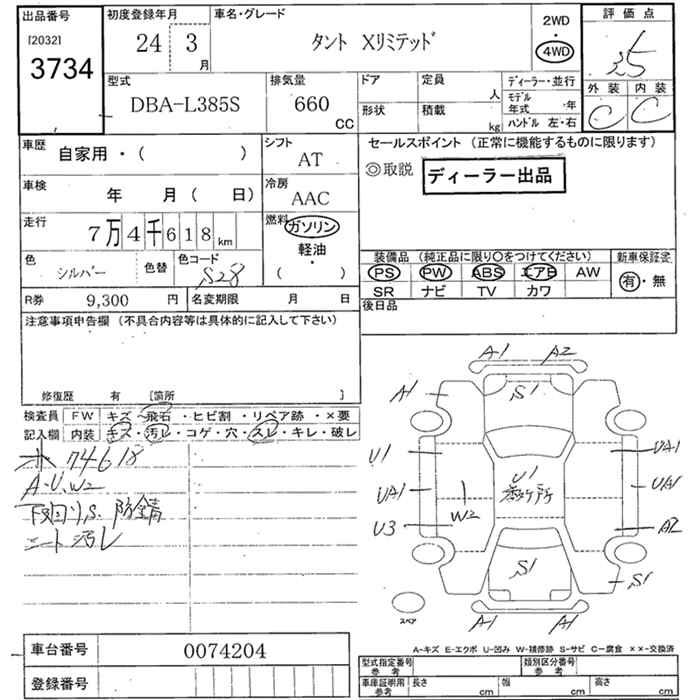 出品番号
[2032]
3734
初度登録年月
24 3 月
車名・グレード
タント Xリミテッド
2WD
・
4WD
評価点
3.5
外装 内装
C C
型式
DBA-L385S
排気量
660 CC
ドア 定員 人
形状 積載 kg
ディーラー・並行
モデル年式 年
ハンドル 左・右
車歴
自家用・( )
シフト
AT
車検
年 月( 日)
冷房
AAC
走行
7万4千618 km
燃料
ガソリン
軽油・
( )
色
シルバー
色替
色コード
S28
R券 9,300 円
名変期限 月 日
セールスポイント (正常に機能するものに限ります)
◎取説
ディーラー出品
装備品 (純正品に限り○をつけてください)
PS PW ABS エアB AW
SR ナビ TV カワ
新車保証書
有・無
後日品
注意事項申告欄 (不具合内容等は具体的に記入して下さい)
修復歴 有 [箇所 ]
検査員記入欄
FW キズ・飛石・ヒビ割・リペア跡・×要
内装 キズ・汚レ・コゲ・穴・スレ・キレ・破レ
74618
A・U・W2
下回りS 防錆
シート汚レ
A1 A2
A1 S1
U1 UA1
UA1 U1 UA1
W2
U3 A2
S1 S1
A1 A1
スペア
A-キズ E-エクボ U-凹み W-補修跡 S-サビ C-腐食 ××-交換済
車台番号 0074204
登録番号
型式指定番号 参考
類別区分番号 参考
車庫証明用 参考
長さ cm 幅 cm 高さ cm